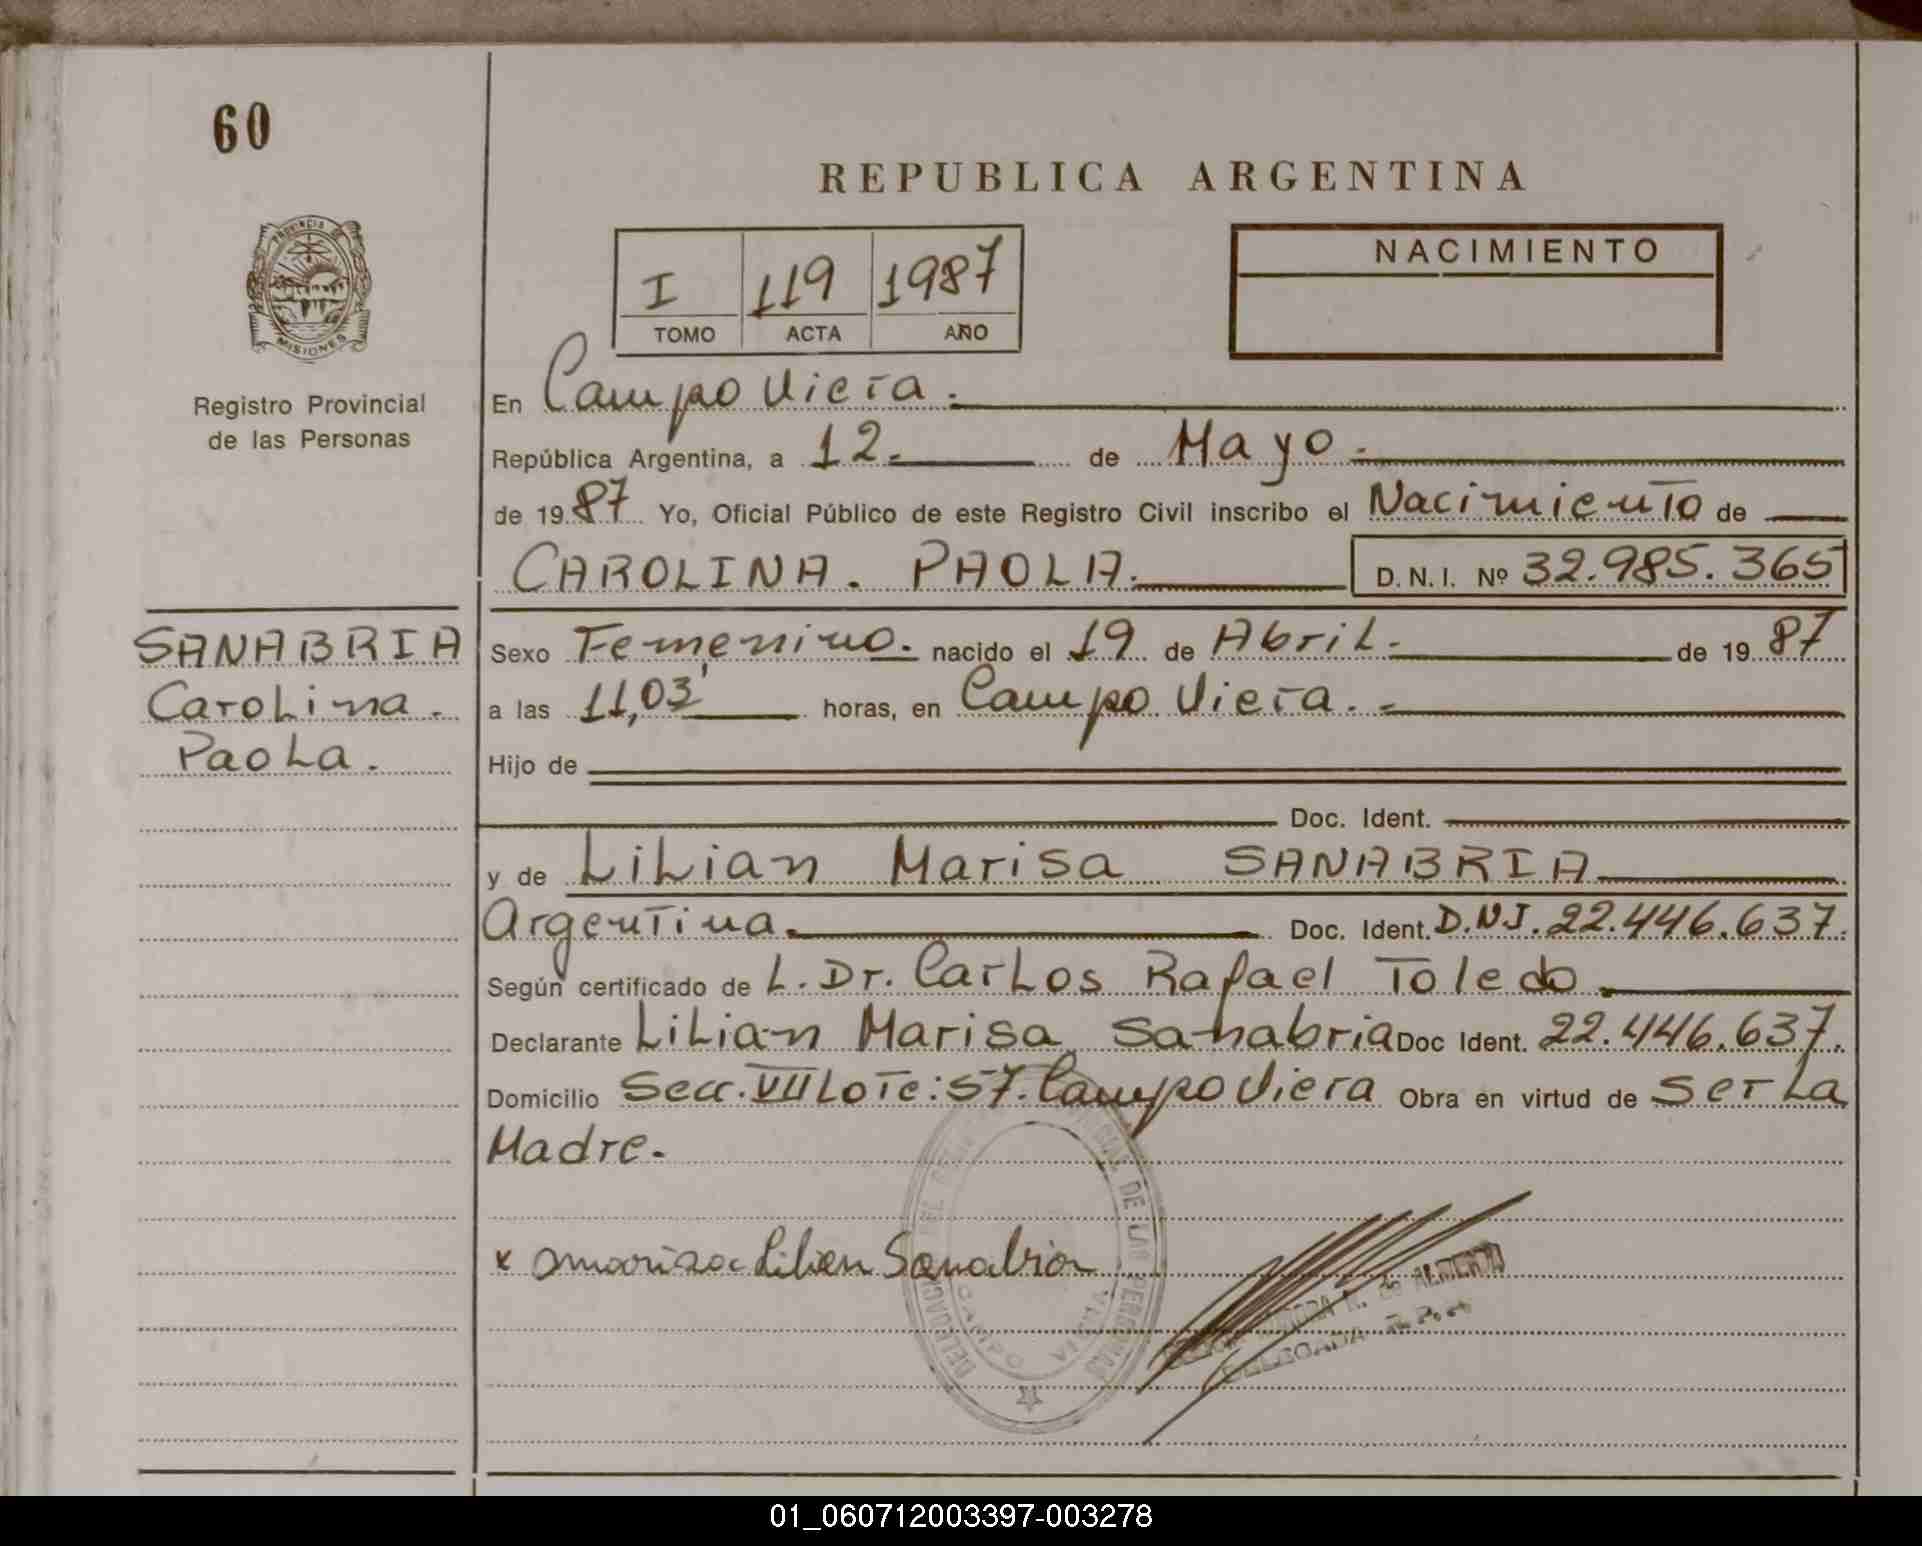 60
REPUBLICA ARGENTINA
PROVINCIA DE
MISIONES
Registro Provincial
de las Personas
I 119 1987
TOMO ACTA AÑO
NACIMIENTO
En Campo Viera.
República Argentina, a 12. de Mayo.
de 1987 Yo, Oficial Público de este Registro Civil inscribo el Nacimiento de
CAROLINA. PAOLA. D.N.I. Nº 32.985.365
SANABRIA
Carolina.
Paola.
Sexo Femenino. nacido el 19 de Abril. de 19 87
a las 11,03' horas, en Campo Viera.
Hijo de
Doc. Ident.
y de Lilian Marisa SANABRIA
Argentina. Doc. Ident. D.N.I. 22.446.637.
Según certificado de L. Dr. Carlos Rafael Toledo.
Declarante Lilian Marisa Sanabria Doc Ident. 22.446.637.
Domicilio Secc. VII Lote: 57. Campo Viera Obra en virtud de ser La
Madre.
x Mariza Lilian Sanabria
DE LAS PERSONAS
CAMPO VIERA
de ALMEIDA
DELEGADA
01_060712003397-003278